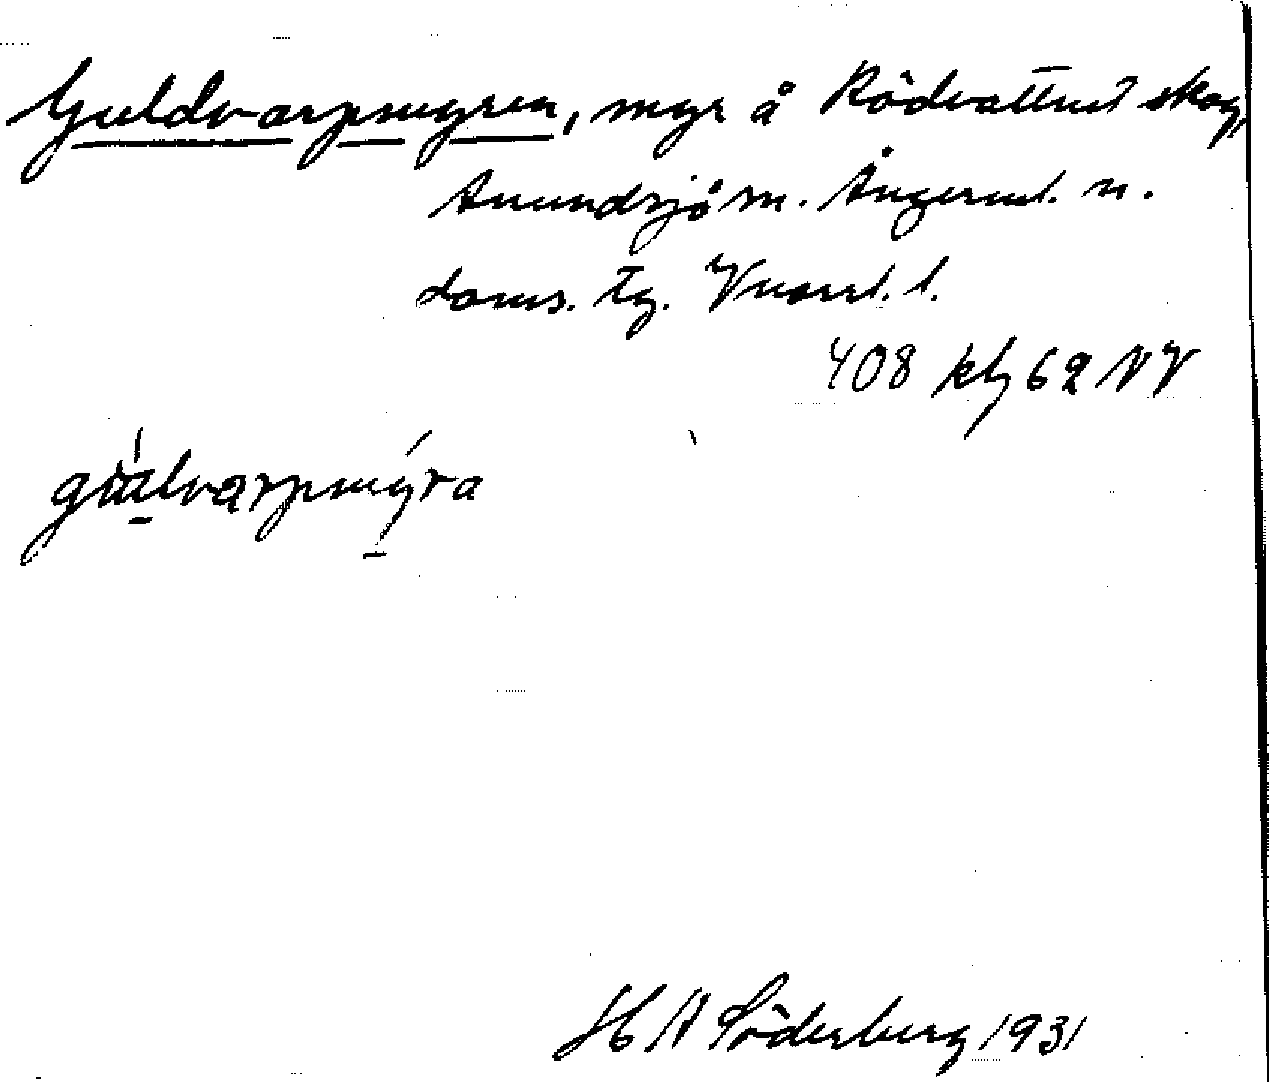 Guldvarpmyren, myr å Rödvattnet skog,
Anundsjö sn. Ångerml. n.
doms. tg. Vnorrl. l.
408 kbl 62 NV
gulvarpmyra
H A Söderberg 1931